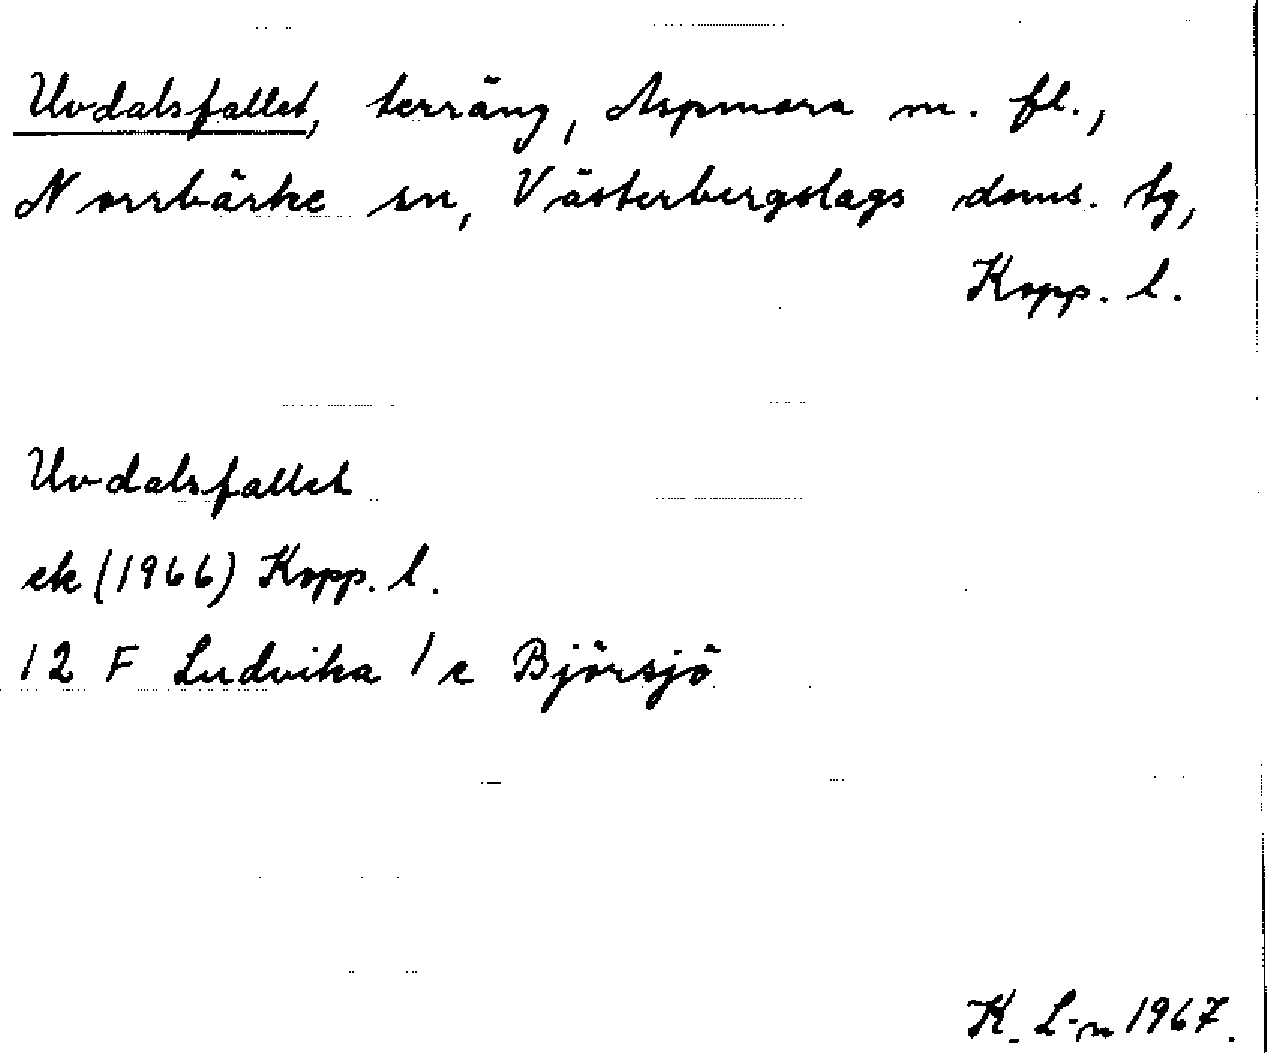 Uvdalsfallet, terräng, Aspmora m. fl.,
Norrbärke sn, Västerbergslags doms. tg,
Kopp. l.
Uvdalsfallet
ek (1966) Kopp. l.
12 F Ludvika 1 c Björsjö
K. L-n 1967.